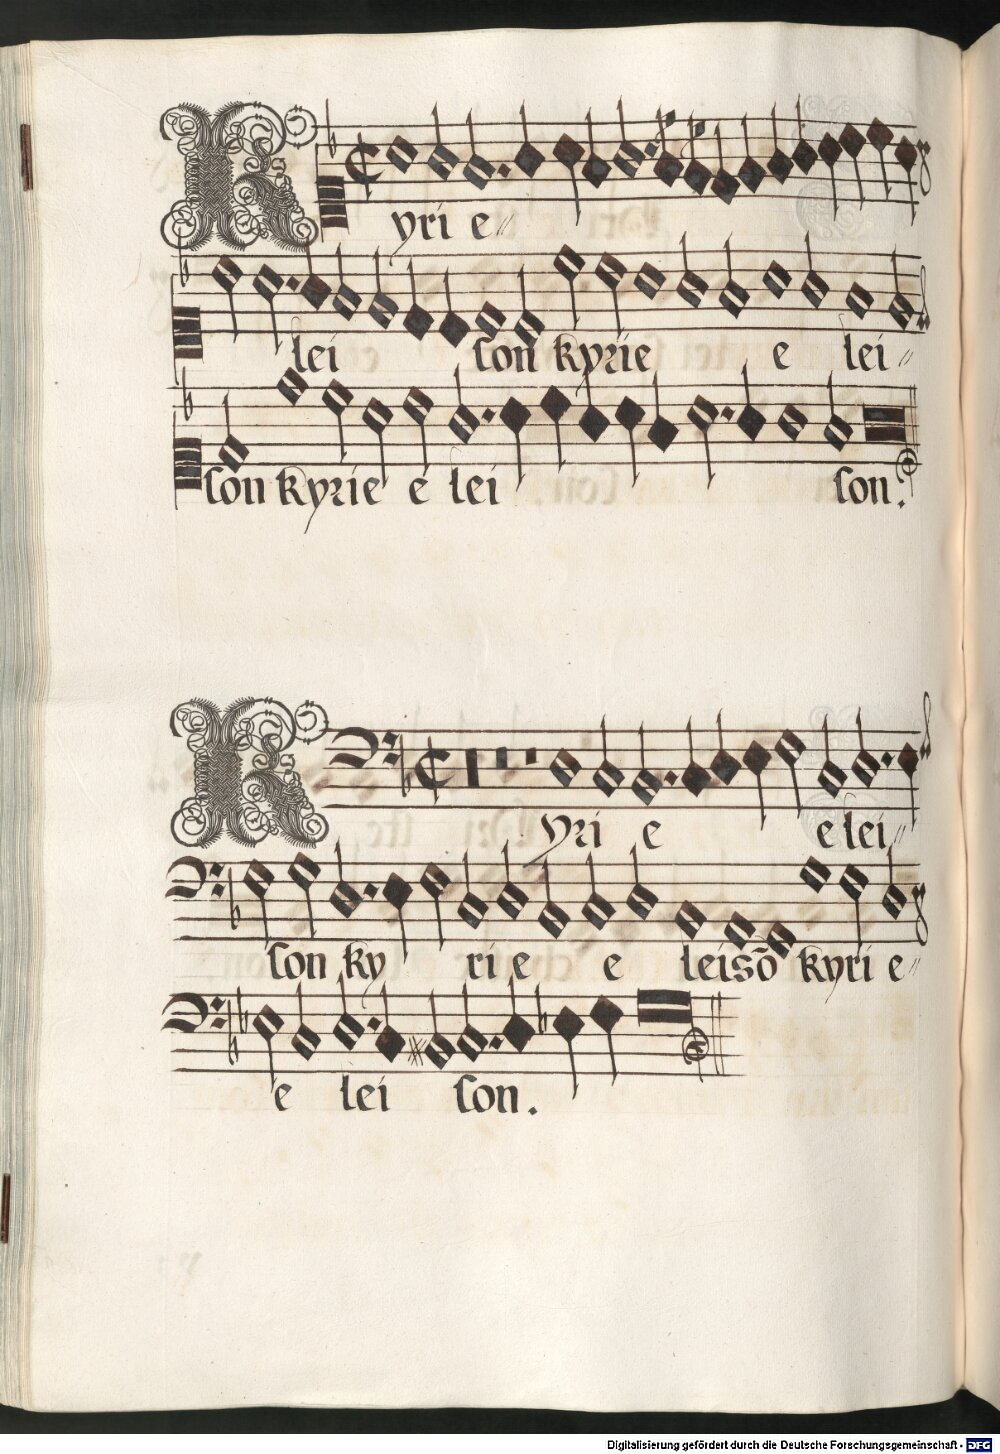 Kyri e〃
lei son kyrie e lei〃
son kyrie e lei son.
Kyri e e lei〃
son ky ri e e leisõ kyri e〃
e lei son.
Digitalisierung gefördert durch die Deutsche Forschungsgemeinschaft - DFG